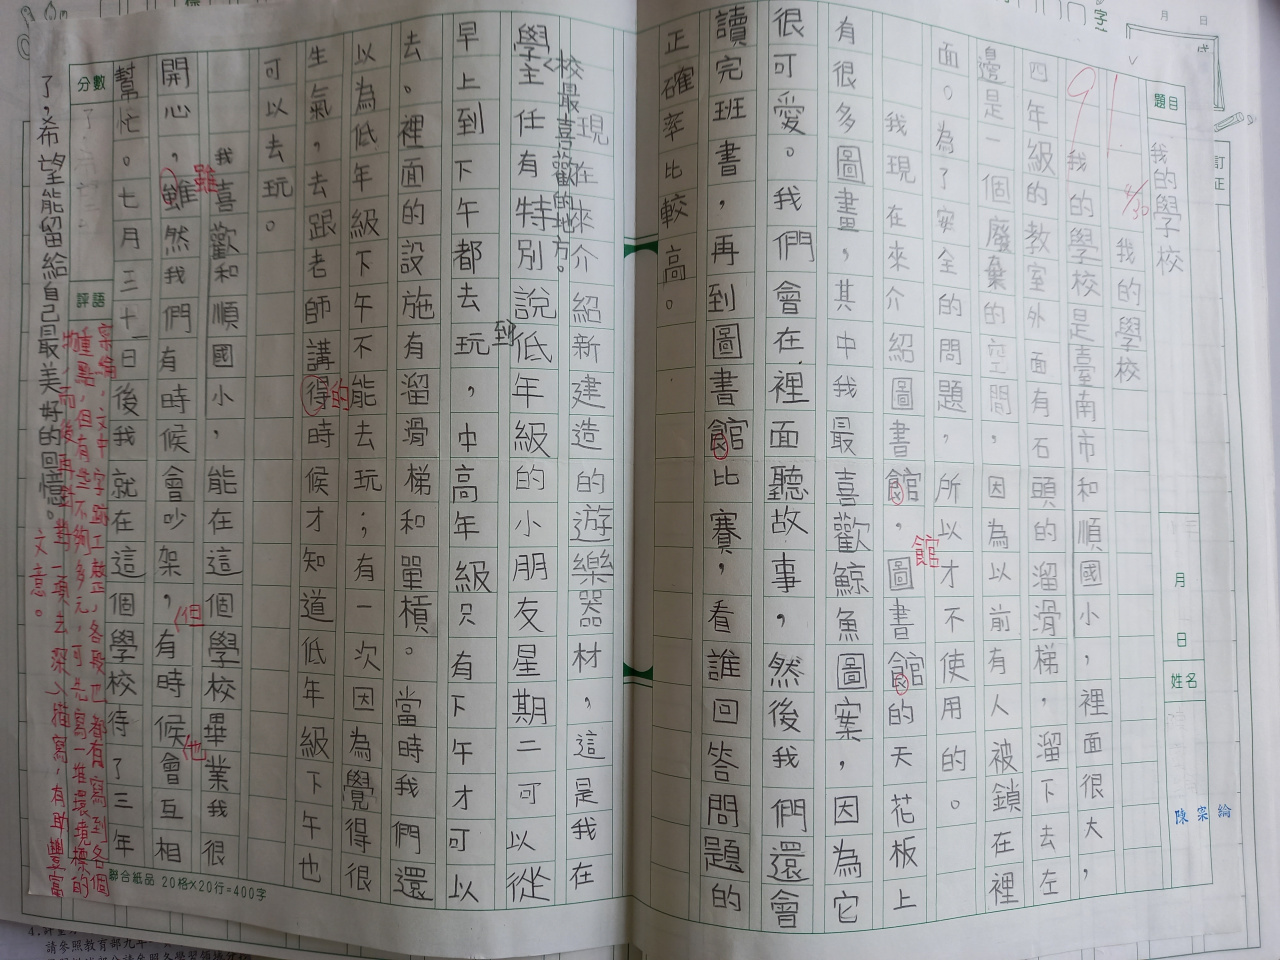 題目
我的學校
年
月
日
姓名
陳宗綸
訂正
91
4/30
我的學校
我的學校是臺南市和順國小，裡面很大，
四年級的教室外面有石頭的溜滑梯，溜下去左
邊是一個廢棄的空間，因為以前有人被鎖在裡
面。為了安全的問題，所以才不使用的。
我現在來介紹圖書館，圖書館的天花板上
館
有很多圖畫，其中我最喜歡鯨魚圖案，因為它
很可愛。我們會在裡面聽故事，然後我們還會
讀完班書，再到圖書館比賽，看誰回答問題的
正確率比較高。
現在來介紹新建造的遊樂器材，這是我在
校最喜歡的地方。
學主任有特別說低年級的小朋友星期二可以從
到
早上到下午都去玩，中高年級只有下午才可以
去。裡面的設施有溜滑梯和單槓。當時我們還
以為低年級下午不能去玩；有一次因為覺得很
生氣，去跟老師講得時候才知道低年級下午也
的
可以去玩。
我喜歡和順國小，能在這個學校畢業我很
開心，雖然我們有時候會吵架，有時候會互相
雖
但
也
幫忙。七月三十一日後我就在這個學校待了三年
了，希望能留給自己最美好的回憶。
分數
評語
宗綸，文中字跡工整，各段也都有寫到各個
重點，但有些不夠多元，可先寫一堆環境標的
物，而後再針對一項去深入描寫，有助豐富
文意。
聯合紙品 20格×20行=400字